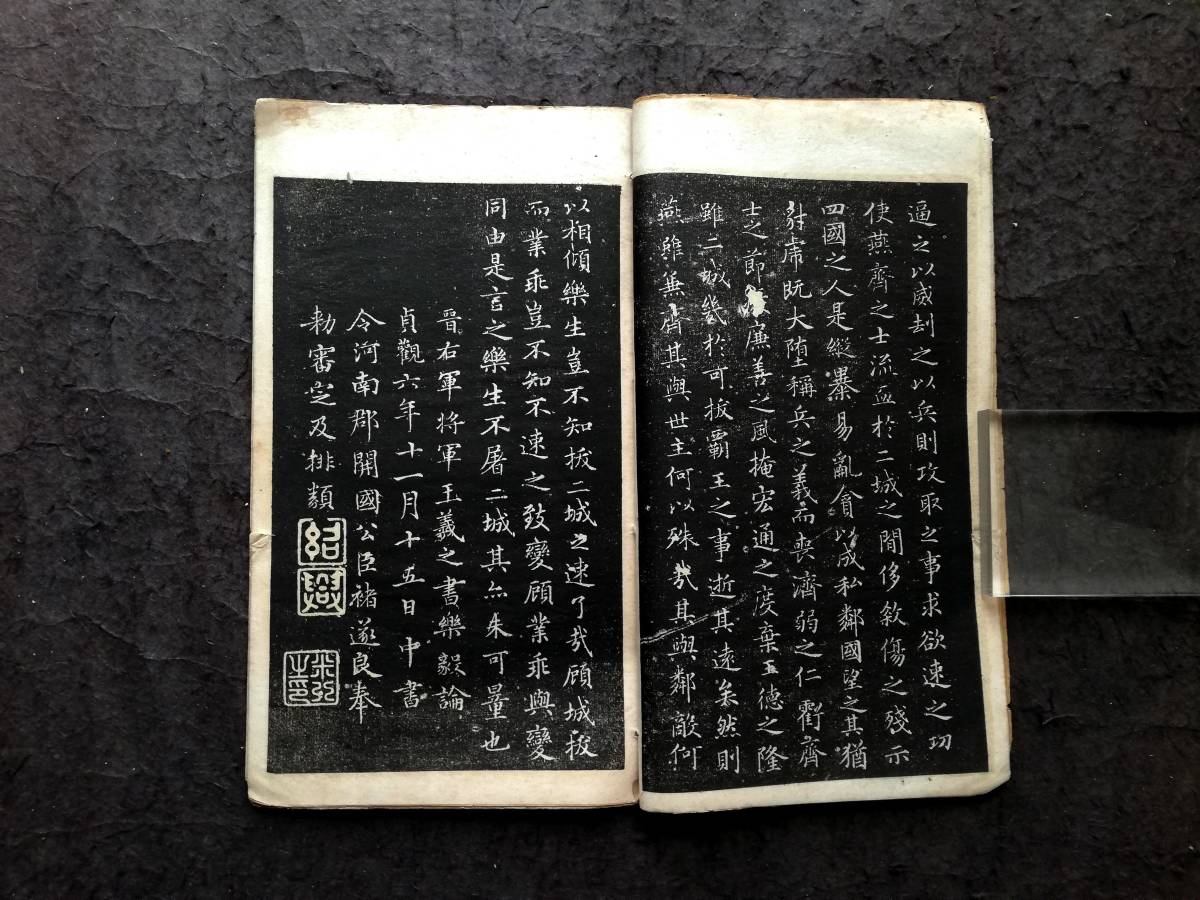 逼之以威刦之以兵則攻取之事求欲速之功
使燕齊之士流血於二城之閒侈敘傷之殘示
四國之人是縱暴易亂貪以成私鄰國望之其猶
豺虎既大堕稱兵之義而喪濟弱之仁虧齊
士之節廉善之風掩宏通之度棄王德之隆
雖二城幾於可拔霸王之事逝其遠矣然則
燕雖兼齊其與世主何以殊哉其與鄰敵何
以相傾樂生豈不知拔二城之速了哉顧城拔
而業乖豈不知不速之致變顧業乖與變
同由是言之樂生不屠二城其亦未可量也
晉右軍將軍王羲之書樂毅論
貞觀六年十一月十五日中書
令河南郡開國公臣褚遂良奉
勑審定及排類
紹興